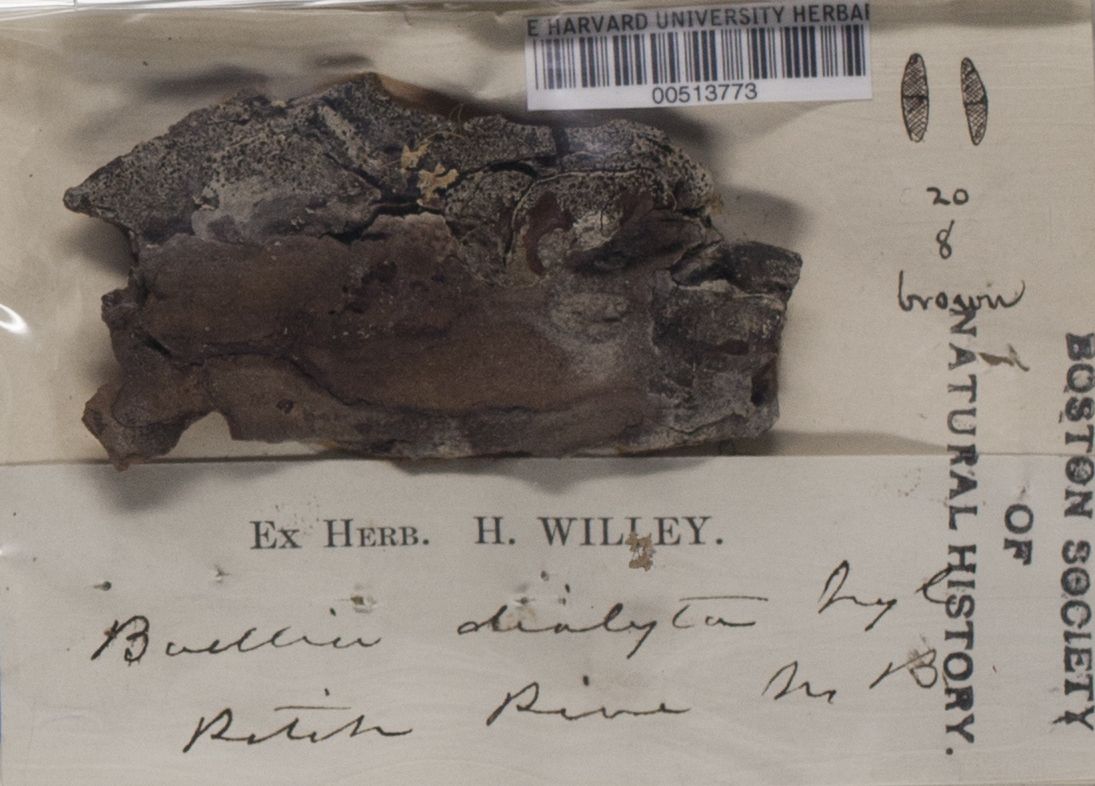 E HARVARD UNIVERSITY HERBAI
00513773
20
8
brown
BOSTON SOCIETY
OF
NATURAL HISTORY.
Ex Herb. H. WILLEY.
Buellia dialyta Nyl
Pitch Pine N B